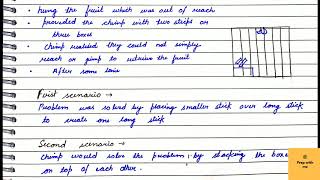 • hung the fruit which was out of reach
• provided the chimp with two sticks or
three boxes
• Chimp realised they could not simply
reach or jump to retrieve the fruit
• After some time
First scenario →
Problem was solved by placing smaller stick over long stick
to create one long stick
Second scenario →
Chimp would solve the problem by stacking the boxes
on top of each other.
Prep with
me